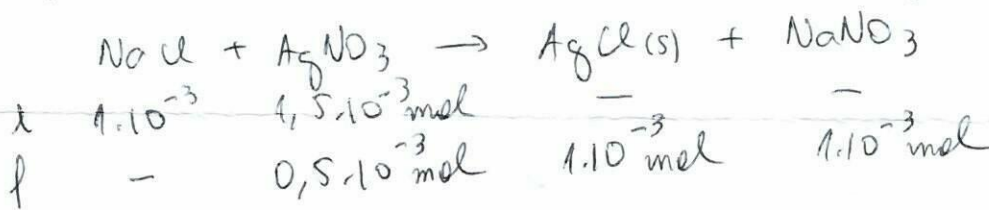 NaCl + AgNO₃ → AgCl(s) + NaNO₃
i 1.10⁻³ 1,5.10⁻³ mol — —
f - 0,5.10⁻³ mol 1.10⁻³ mol 1.10⁻³ mol